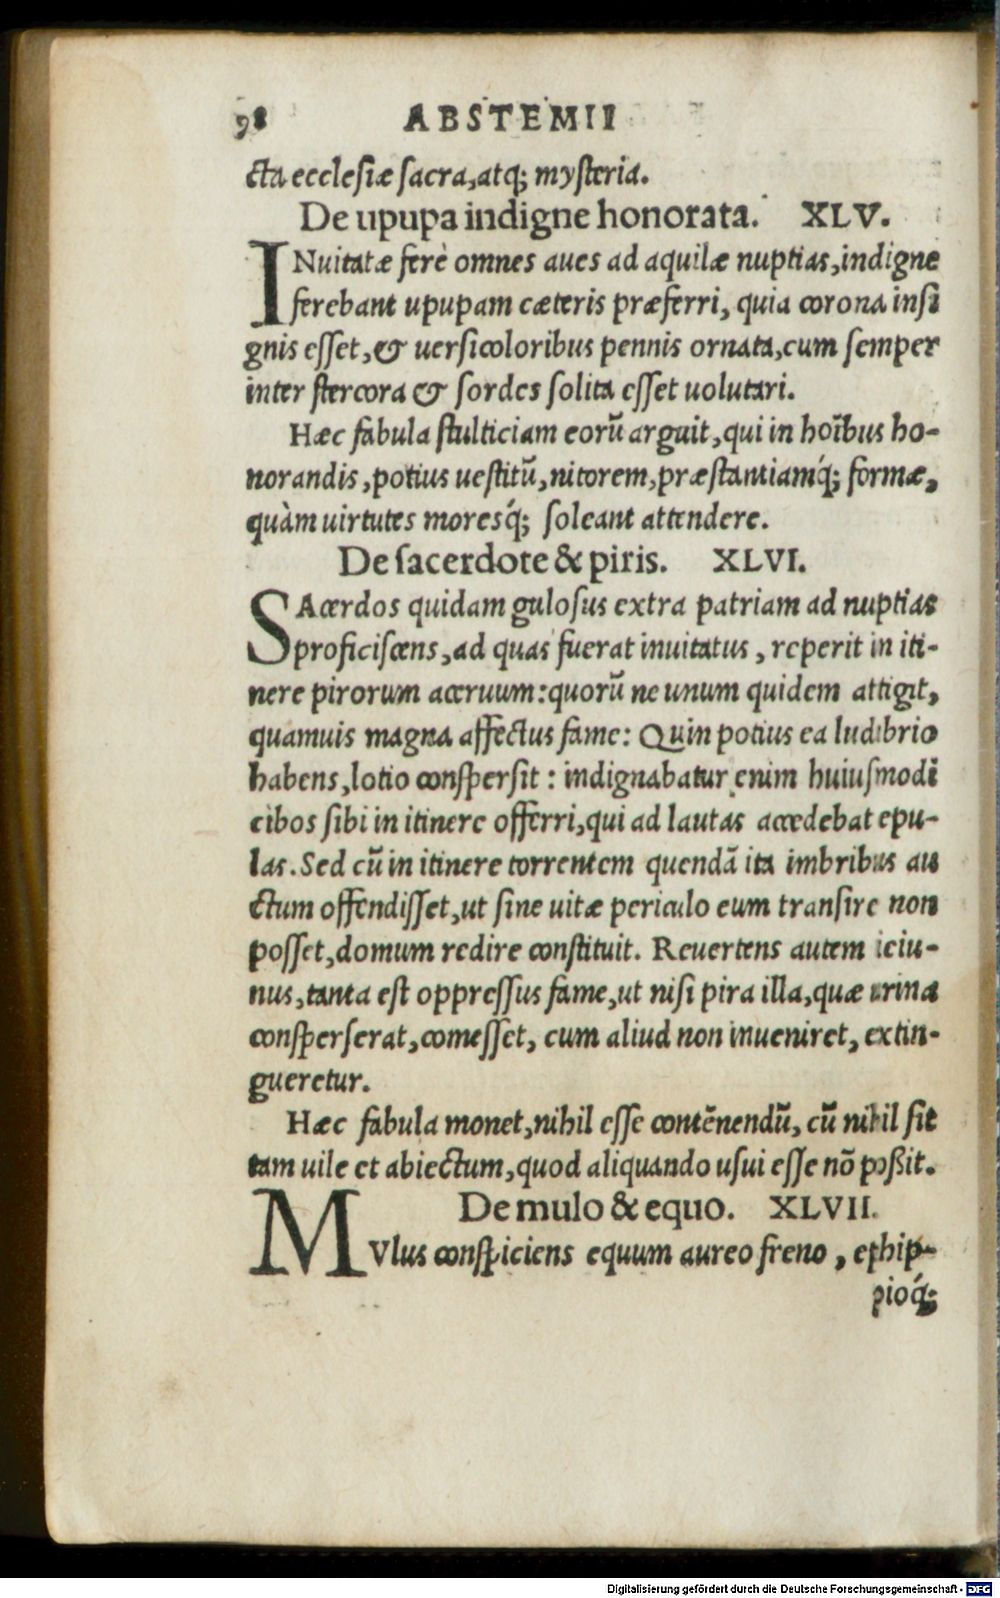 98 ABSTEMII
cta ecclesiæ sacra,atq; mysteria.
De upupa indigne honorata. XLV.
INuitatæ ferè omnes aues ad aquilæ nuptias,indigne
ferebant upupam cæteris præferri, quia corona insi
gnis esset,& uersicoloribus pennis ornata,cum semper
inter stercora & sordes solita esset uolutari.
Hæc fabula stulticiam eorũ arguit,qui in hoĩbus ho-
norandis,potius uestitũ,nitorem,præstantiamq́; formæ,
quàm uirtutes moresq́; soleant attendere.
De sacerdote & piris. XLVI.
SAcerdos quidam gulosus extra patriam ad nuptias
proficiscens,ad quas fuerat inuitatus, reperit in iti-
nere pirorum aceruum:quorũ ne unum quidem attigit,
quamuis magna affectus fame: Quin potius ea ludibrio
habens,lotio conspersit: indignabatur enim huiusmodi
cibos sibi in itinere offerri,qui ad lautas accedebat epu-
las. Sed cũ in itinere torrentem quendã ita imbribus au
ctum offendisset,ut sine uitæ periculo eum transire non
posset,domum redire constituit. Reuertens autem ieiu-
nus,tanta est oppressus fame,ut nisi pira illa,quæ urina
consperserat,comesset, cum aliud non inueniret, extin-
gueretur.
Hæc fabula monet,nihil esse contẽnendũ, cũ nihil sit
tam uile et abiectum,quod aliquando usui esse nõ poßit.
De mulo & equo. XLVII.
MVlus conspiciens equum aureo freno, ephip-
pioq́;
Digitalisierung gefördert durch die Deutsche Forschungsgemeinschaft - DFG